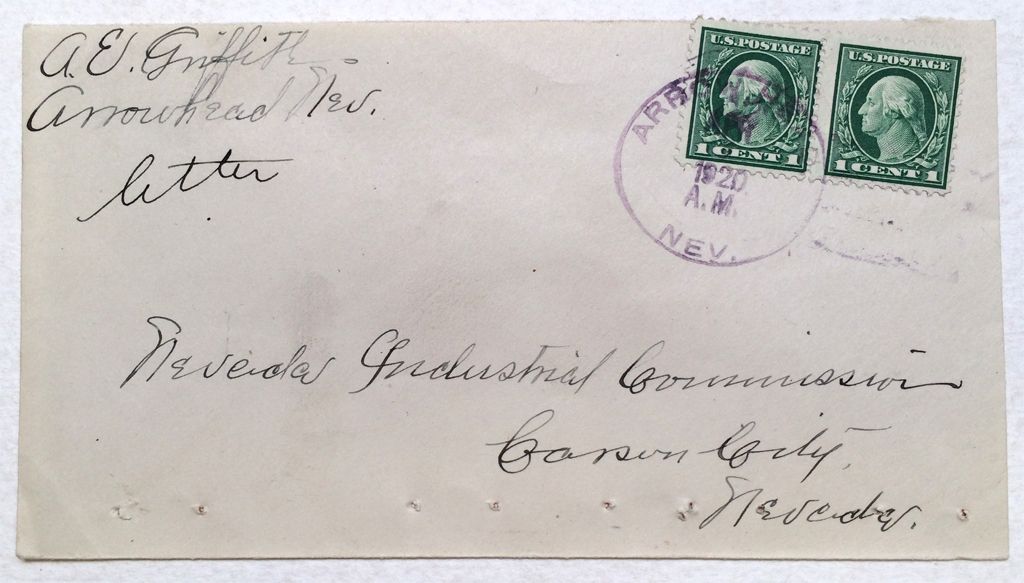 A. E. Griffith
Arrowhead Nev.
letter
U.S. POSTAGE
1 CENT 1
U.S. POSTAGE
1 CENT 1
1920
A.M.
NEV.
Nevada Industrial Commission
Carson City,
Nevada.